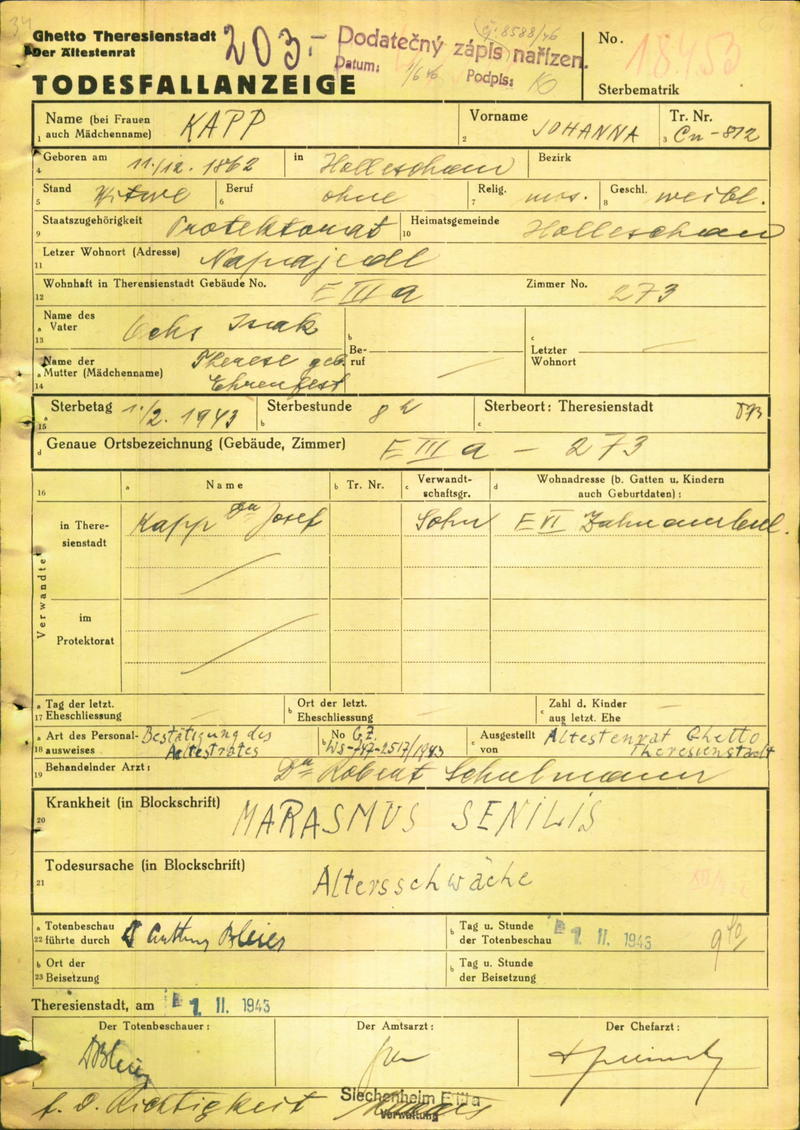 34
Ghetto Theresienstadt
Der Ältestenrat
203.-
Dodatečný zápis nařízen.
čj. 8588/46
Datum: 1/6 46 Podpis:
No. 18453
Sterbematrik
TODESFALLANZEIGE
Name (bei Frauen auch Mädchenname) KAPP
1
Vorname JOHANNA
2
Tr. Nr. Cn-812
3
Geboren am 11./12. 1862 in Holleschau Bezirk
4
Stand Witwe Beruf ohne Relig. mos. Geschl. weibl.
5 6 7 8
Staatszugehörigkeit Protektorat Heimatsgemeinde Holleschau
9 10
Letzer Wohnort (Adresse) Napajedl
11
Wohnhaft in Therensienstadt Gebäude No. E III a Zimmer No. 273
12
Name des Vater Ochs Isak
a 13
Name der Mutter (Mädchenname) Therese geb. Ehrenfest
a 14
b Be-ruf
c Letzter Wohnort
Sterbetag 1./2. 1943 Sterbestunde 8 h Sterbeort: Theresienstadt
a 15 b c
Genaue Ortsbezeichnung (Gebäude, Zimmer) E III a - 273
d
16 a Name b Tr. Nr. c Verwandt-schaftsgr. d Wohnadresse (b. Gatten u. Kindern auch Geburtdaten):
Verwandte
in There-sienstadt Kapp Josef Sohn E VI
im Protektorat
a 17 Tag der letzt. Eheschliessung b Ort der letzt. Eheschliessung c Zahl d. Kinder aus letzt. Ehe
a 18 Art des Personal-ausweises Bestätigung des Ältestrates b No G.Z. WS-747-2517/1943 c Ausgestellt von Ältestenrat Ghetto Theresienstadt
19 Behandelnder Arzt: Dr. Robert Schulmann
Krankheit (in Blockschrift) MARASMUS SENILIS
20
Todesursache (in Blockschrift) Altersschwäche
21
a 22 Totenbeschau führte durch Bleier b Tag u. Stunde der Totenbeschau 1. II. 1943
b 23 Ort der Beisetzung b Tag u. Stunde der Beisetzung
Theresienstadt, am 1. II. 1943
Der Totenbeschauer: Der Amtsarzt: Der Chefarzt:
f. d. Richtigkeit
Siechenheim E III a
Verwaltung